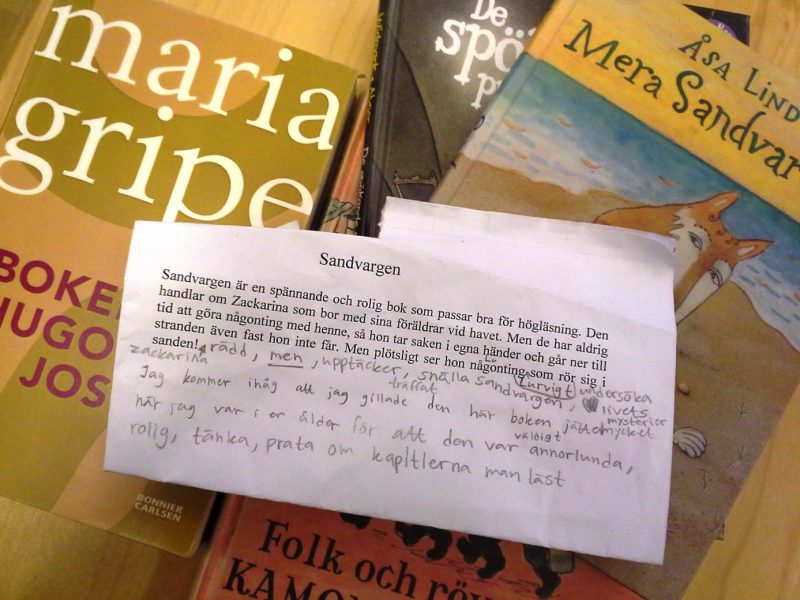 maria
gripe
BOKE
HUGO
JOS
BONNIER
CARLSEN
De
spö
ÅSA LIND
Mera Sandvar
Sandvargen
Sandvargen är en spännande och rolig bok som passar bra för högläsning. Den
handlar om Zackarina som bor med sina föräldrar vid havet. Men de har aldrig
tid att göra någonting med henne, så hon tar saken i egna händer och går ner till
stranden även fast hon inte får. Men plötsligt ser hon någonting som rör sig i
sanden!
zackarina rädd, men, upptäcker, snälla sandvargen, undersöka
livets mysterier
träffat
Jag kommer ihåg att jag gillade den här boken jättemycket
när jag var i er ålder för att den var annorlunda,
väldigt
rolig, tänka, prata om kapitlerna man läst
Folk och röv
KAMO